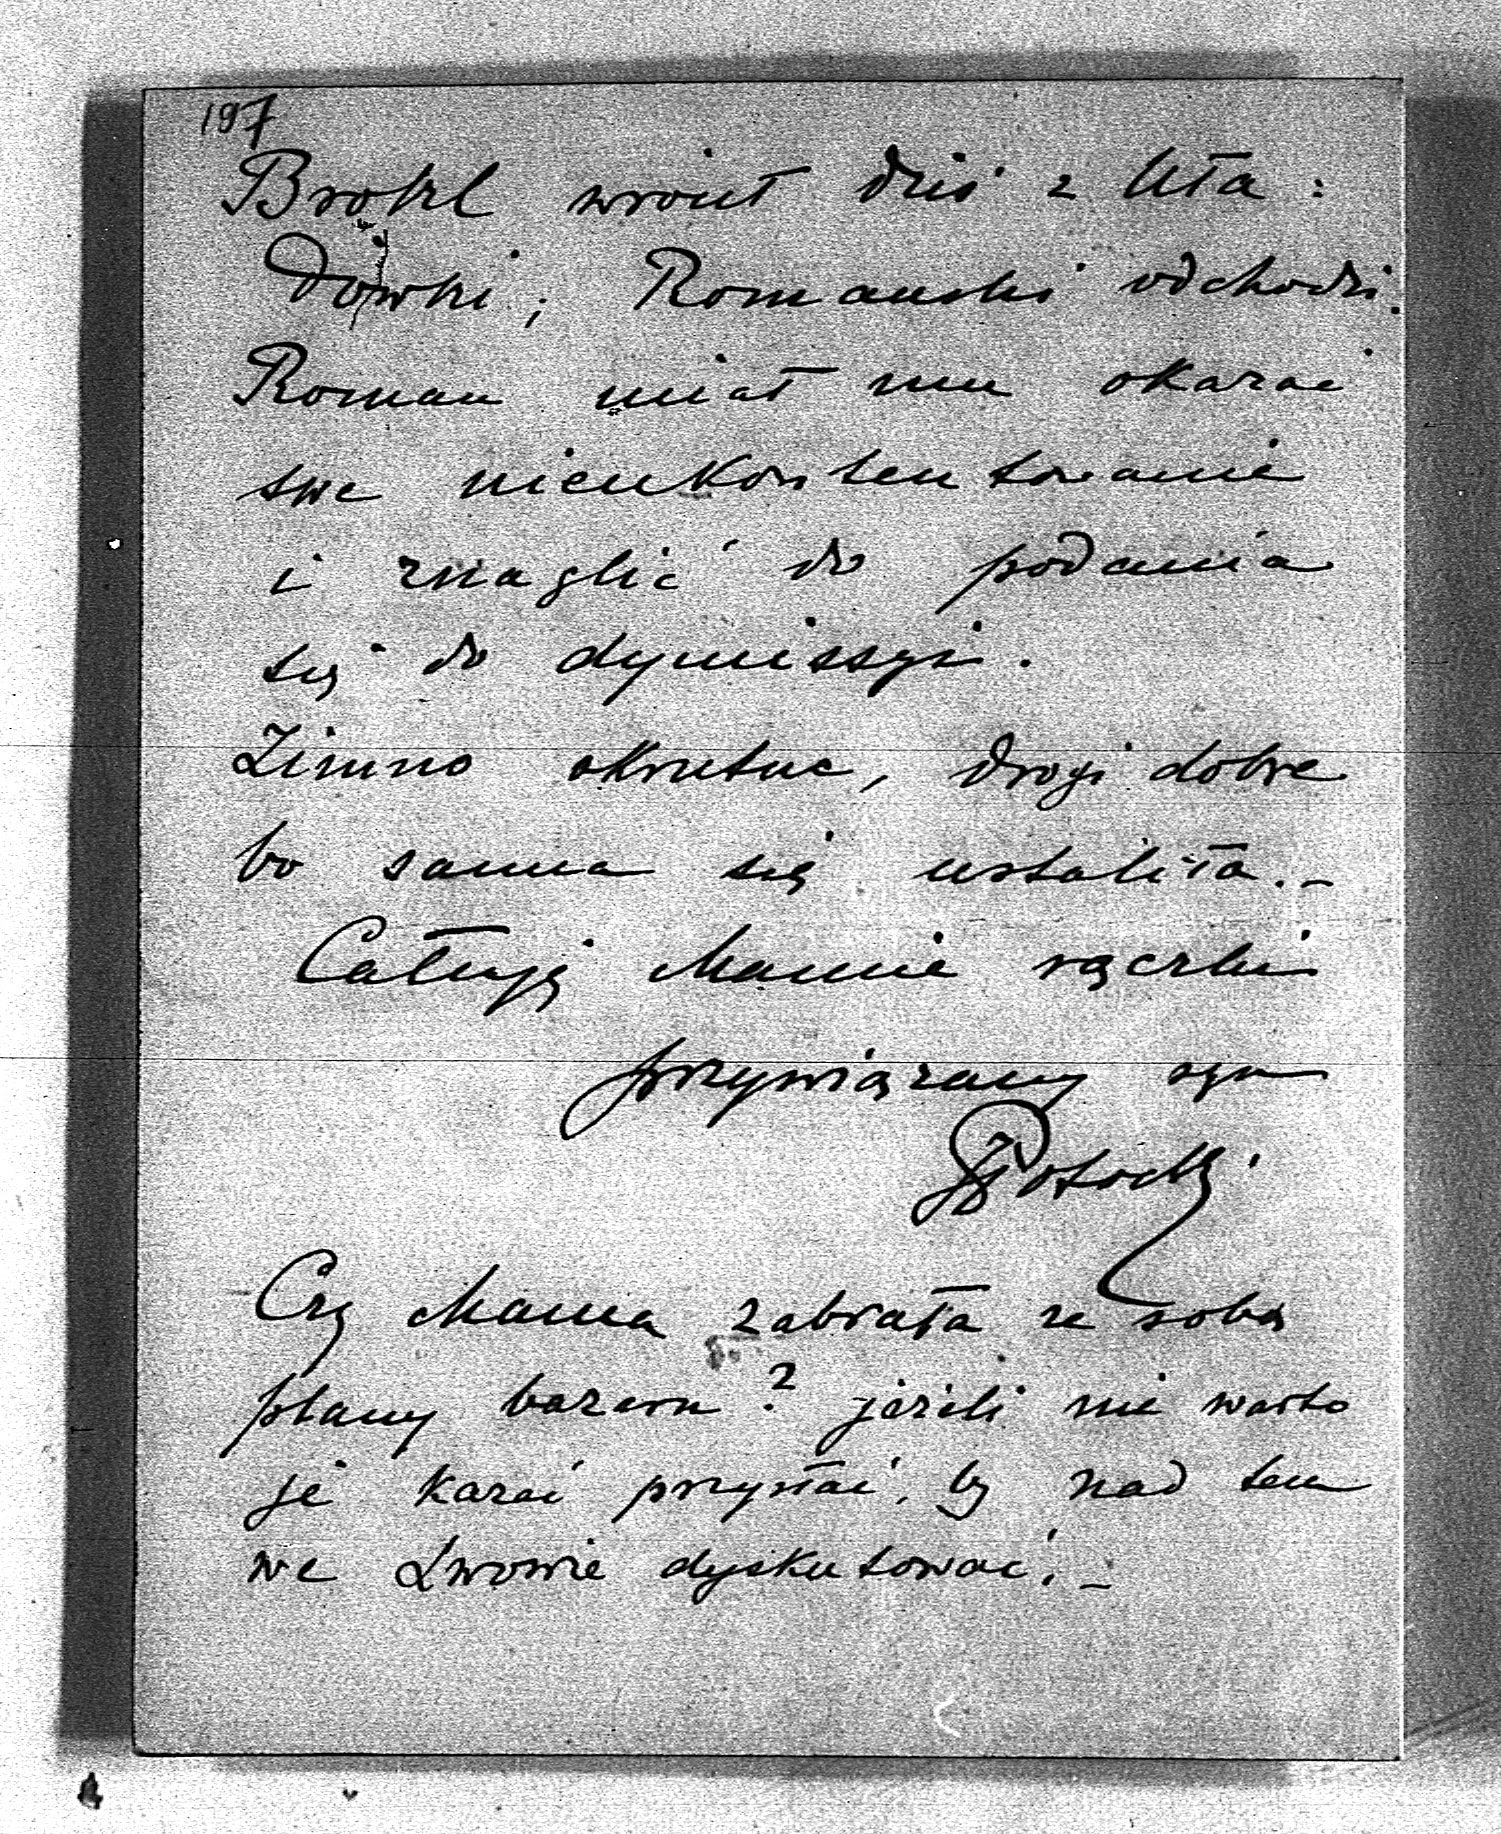 197
Brokl wrócił dziś z Uła:
dówki; Romanski odchodzi.
Roman miał mu okazać
swe nieukontentowanie
i znaglić do podania
się do dymissyi.
Zimno okrutne, drogi dobre
bo sanna się ustaliła._
Całuję Mamie rączki
przywiązany syn
JPotocki
Czy Mama zabrała ze sobą
plany bazaru? jeżeli nie warto
je kazać przysłać, by nad tem
we Lwowie dyskutować._